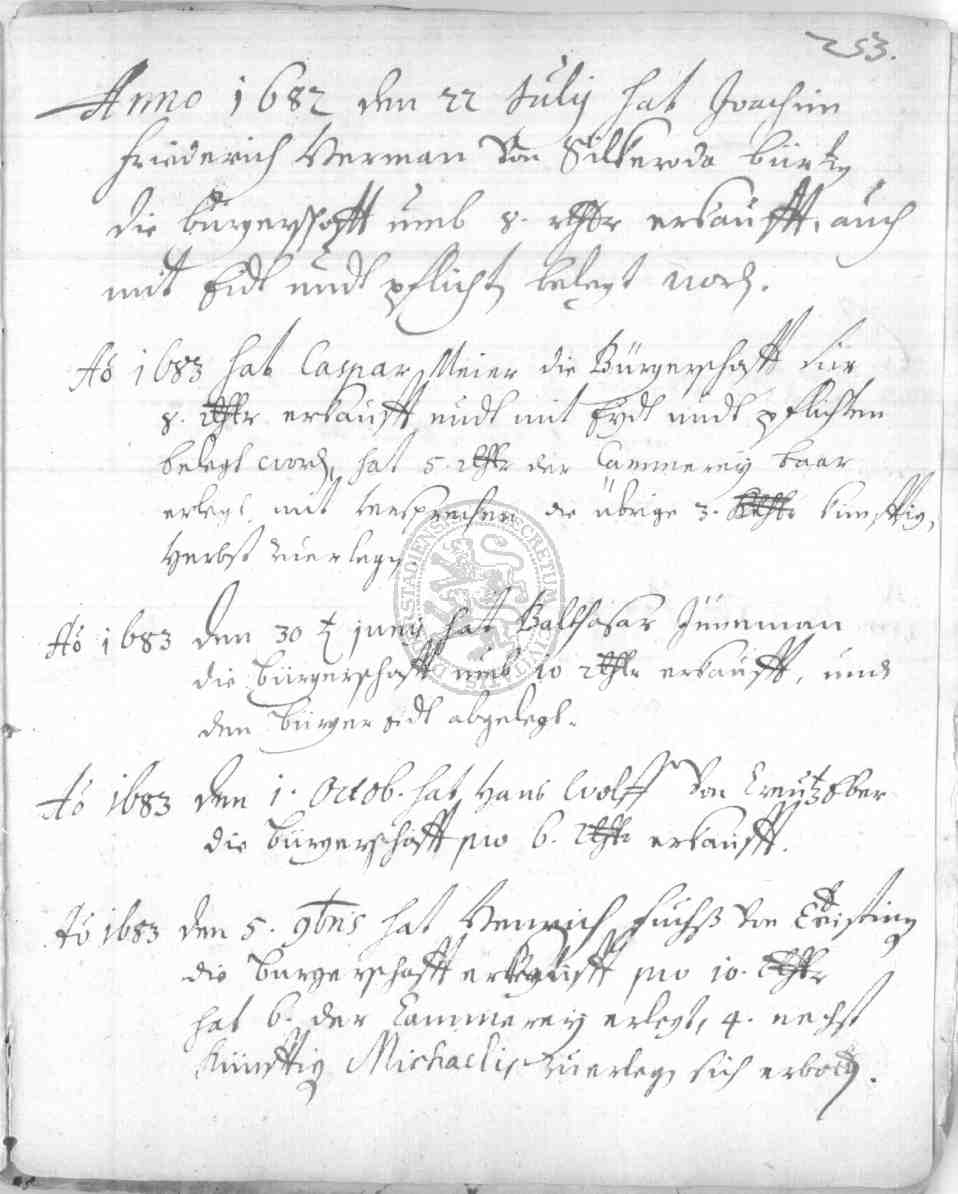 253.
Anno 1682 den 22 Julij hat Joachim
Friederich Herman von Silkeroda bürtig
die bürgerschafft umb 8. rthlr erkaufft, auch
mit Eidt undt pflicht belegt word.
Ao 1683 hat Caspar Meier die Bürgerschafft für
8. rthlr. erkaufft undt mit Eydt undt pflichten
belegt word, hat 5. rthlr der Cammerey baar
erlegt, mit versprechen die übrige 3. rthlr künfftig
Herbst zuerlegen
Ao 1683 den 30 t Junij hat Balthasar Jüneman
die bürgerschafft umb 10 rthlr erkaufft, und
den bürger eidt abgelegt.
Ao 1683 den 1. Octob. hat Hans Wolff von Creutzeber
die bürgerschafft pro 6. rthlr erkaufft.
Ao 1683 den 5. 9bris hat Henrich Fuchß von
die burgerschafft erkaufft pro 10. rthlr
hat 6. der Cammerey erlegt, 4. nechst
künfftig Michaelis zuerlegen sich erboten.